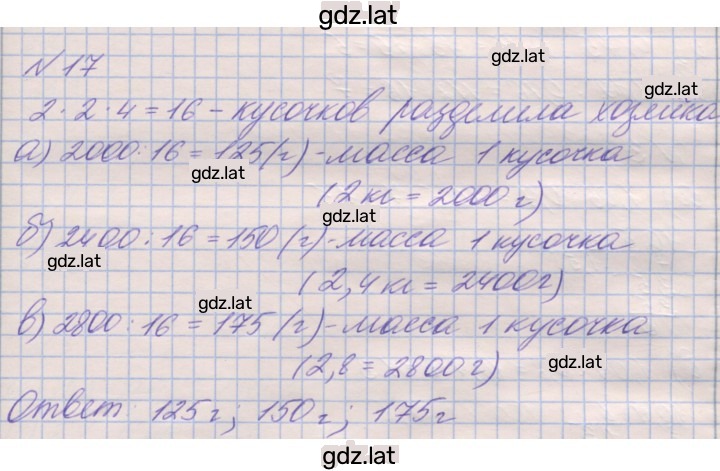 gdz.lat
№ 17
gdz.lat
gdz.lat
2 · 2 · 4 = 16 - кусочков разделила хозяйка
а) 2000 : 16 = 125 (г) - масса 1 кусочка
gdz.lat
(2 кг = 2000 г)
gdz.lat
б) 2400 : 16 = 150 (г) - масса 1 кусочка
gdz.lat
(2,4 кг = 2400г)
gdz.lat
в) 2800 : 16 = 175 (г) - масса 1 кусочка
(2,8 = 2800 г)
gdz.lat
Ответ: 125г; 150г; 175г
gdz.lat